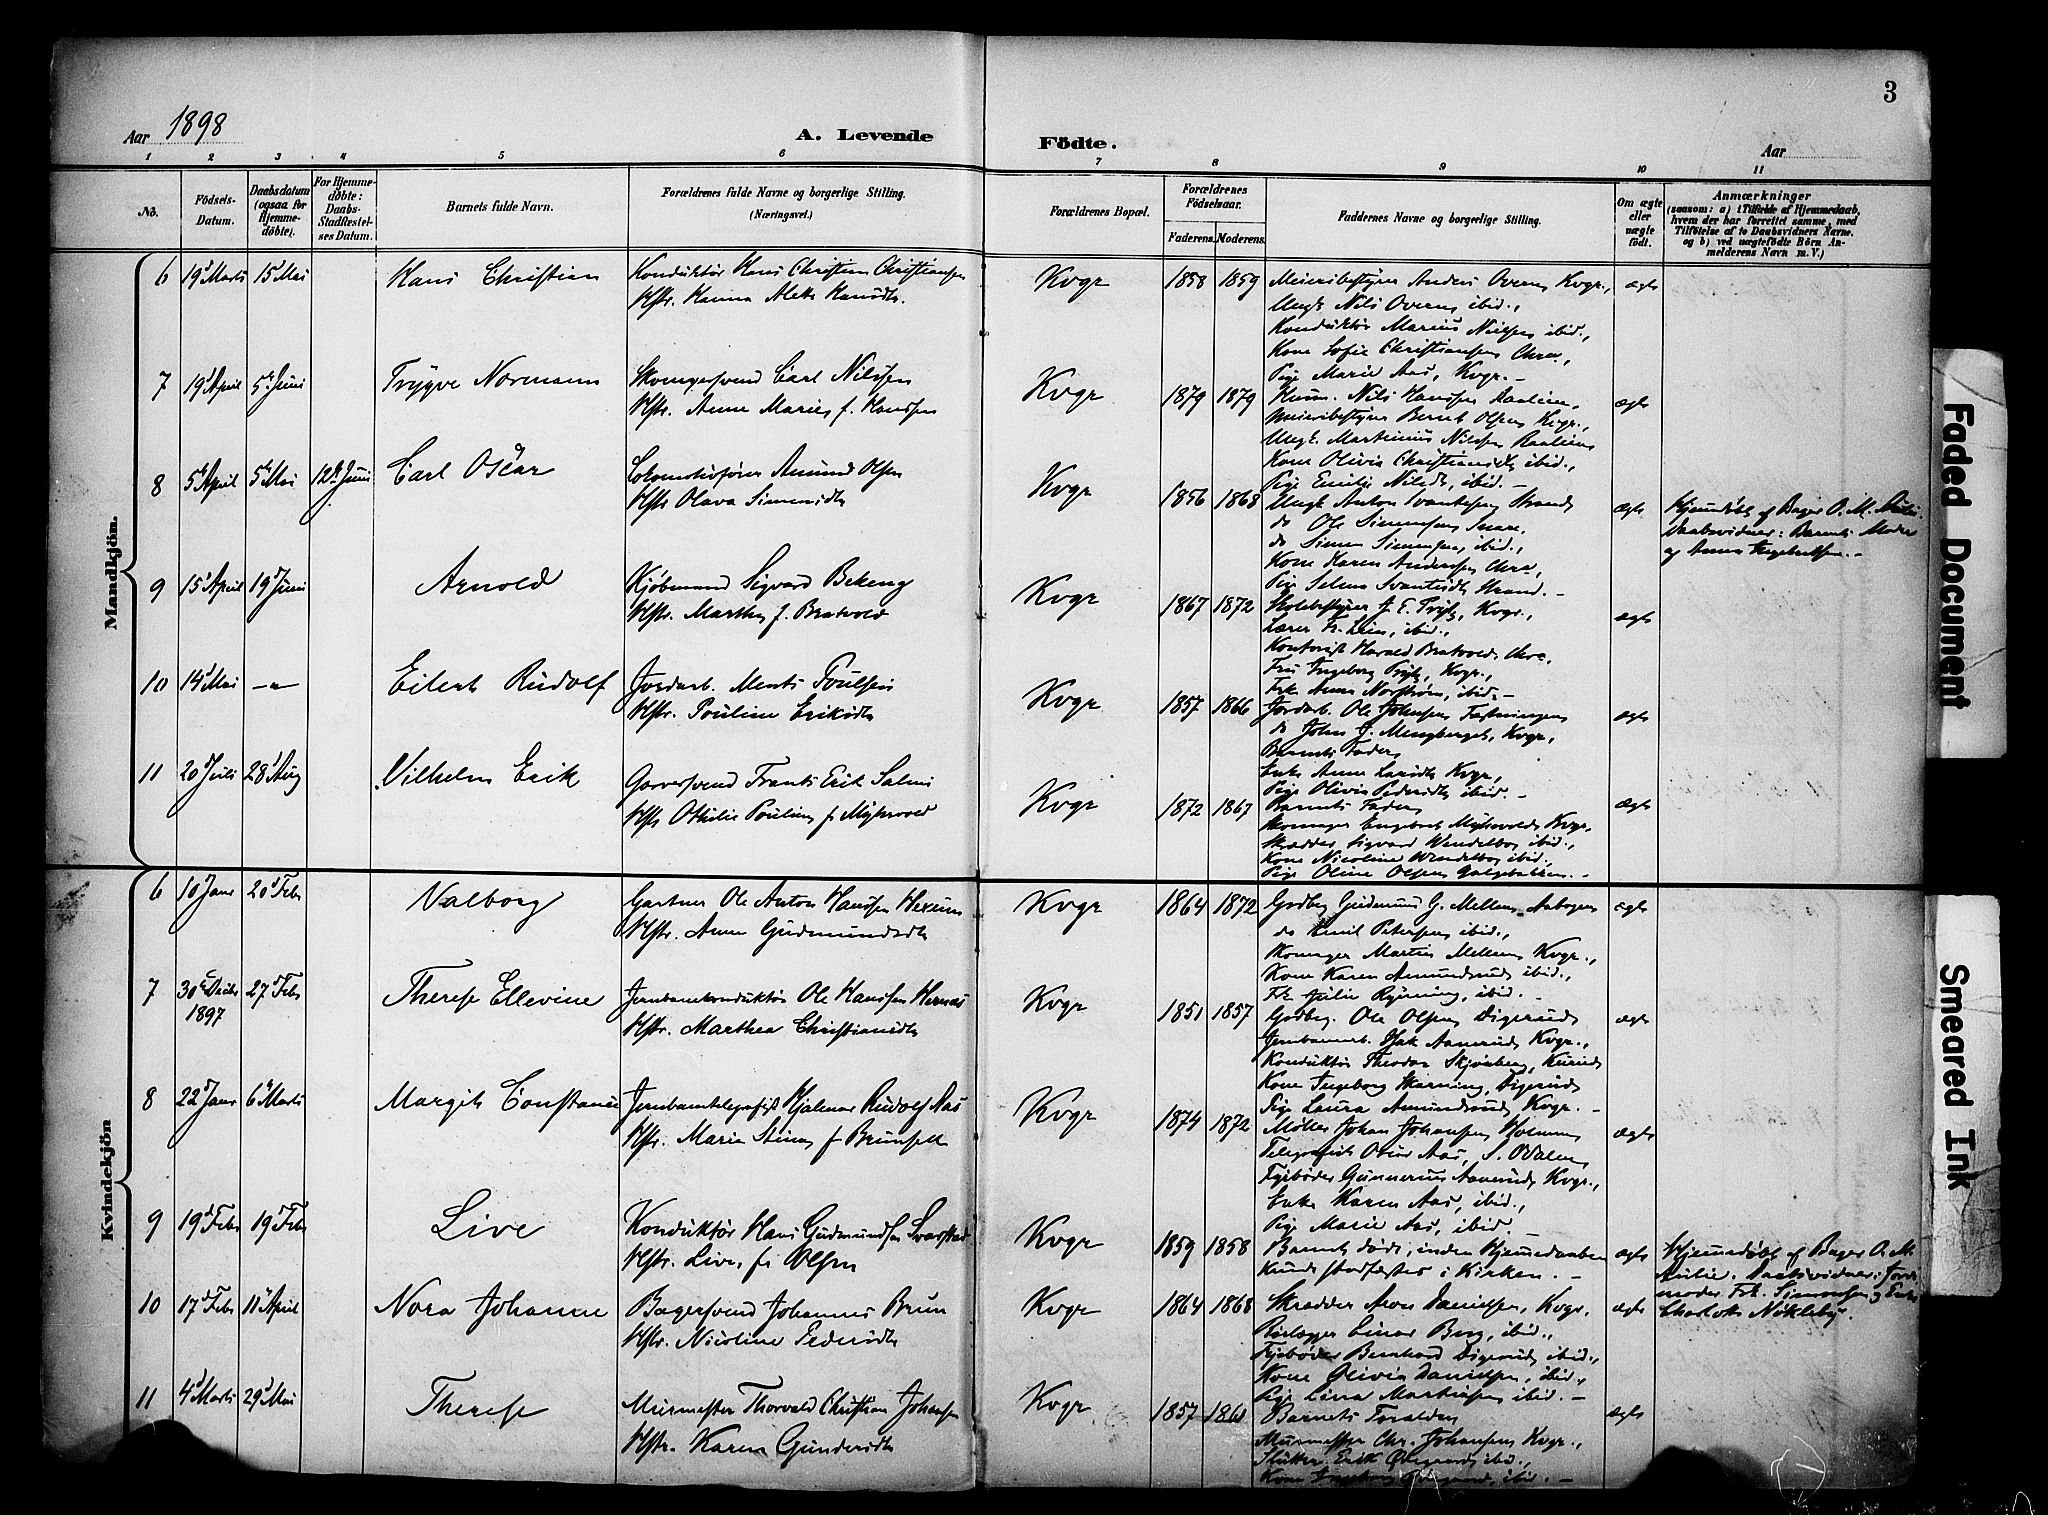 3
Aar 1898
A. Levende
Födte.
Aar
1 2 3 4 5 6 7 8 9 10 11
No.
Födsels-
Datum.
Daabsdatum
(ogsaa for
Hjemme-
döbte).
For Hjemme-
döbte:
Daabs-
Stadfæstel-
ses Datum.
Barnets fulde Navn.
Forældrenes fulde Navne og borgerlige Stilling.
(Næringsvei.)
Forældrenes Bopæl.
Forældrenes
Födselsaar.
Faderens. Moderens.
Faddernes Navne og borgerlige Stilling.
Om ægte
eller
uægte
födt.
Anmærkninger
(saasom: a) i Tilfælde af Hjemmedaab,
hvem der har forrettet samme, med
Tilföielse af to Daabsvidners Navne,
og b) ved uægtefödte Börn An-
melderens Navn m. V.)
Mandkjön.
6 19d Marts 15d Mai Hans Christian Konduktör Hans Christian Christiansen
Hstr. Hanna Hansdt.
Kvgr 1858 1859 Meieribestyrer Anders Overn, Kvgr., ægte
Ungk. Nils Overn, ibid.,
Konduktör Marius Nielsen ibid.,
Kone Sofie Christiansen Chra.,
Pige Marie Aas, Kvgr. -
7 19d April 5te Juni Trygve Normann Skomgersvend Carl Nilssen
Hstr. Anne Marie, f. Hanssen
Kvgr 1879 1879 Husm. Nils Hanssen Raalien, ægte
Meieribestyrer Bernt Olsen, Kvgr.,
Ungk. Martinius Nilssen Raalien
Kone Olivia Christiansdt. ibid.,
Pige Emilie Nilsdt, ibid. -
8 5te April 5te Mai 12te Juni Carl Oscar Lokomotivförer Amund Olsen
Hstr Olava Simensdt
Kvgr 1856 1868 Ungk Anton Svantesen Strand ægte
do Ole Simensen
do Simen Simensen, ibid.,
Kone Karen Andersen Chra,
Pige Selma Svantesdt Strand. -
Hjemmedöbt af Bager O. M. Aulie.
Daabsvidner: Barnets Moder
og Anna Engebretsen. -
9 15d April 19d Juni Arnold Kjöbmand Sigvard Bekeng
Hstr. Marthe, f. Bratvold
Kvgr 1867 1872 Skolebestyrer J. E. Prytz, Kvgr., ægte
Lærer Fr. Lein, ibid.,
Kontorist Harald Bratvold, Chra,
Fru Ingeborg Prytz, Kvgr.,
Frk Anna Norström, ibid. -
10 14d Mai -"- Eilert Rudolf Jordarb. Ments Poulsen
Hstr. Pouline Eriksdt
Kvgr 1857 1866 Jordarb. Ole Johansen Fæstningen ægte
do John J. Mengberget, Kvgr,
Barnets Fader,
Enke Anne Larsdt, Kvgr,
Pige Olivia Pedersdt, ibid. -
11 20d Juli 28d Aug Vilhelm Erik Garversvend Frants Erik Salmi
Hstr Othilie Pouline f Myhrvold
Kvgr 1872 1867 Barnets Fader, ægte
Skomager Engebret Myhrvold, Kvgr,
Skrædder Sigvard Wendelbog ibid.,
Kone Nicoline Wendelbog ibid.,
Pige Oline Olsen Galgebakken. -
Kvindekjön
6 10d Janr 20d Febr Valborg Gartner Ole Anton Hanssen Hexum
Hstr. Anne Gudmundsdt
Kvgr 1864 1872 Gaardbr Gudmund G. Mellem, Aabogen ægte
do Emil Petersen ibid.,
Skomager Martin Mellem, Kvgr.,
Kone Karen Amundsrud, ibid.,
Frk Julie Ryming, ibid. -
7 30te Decbr 27d Febr
1897
Therese Ellevine Jernbanekonduktör Ole Hanssen Hernæs
Hstr. Marthea Christiansdt
Kvgr 1851 1857 Gaardbr. Ole Olsen, Digerud, ægte
Jernbanearb. Isak Aamrud, Kvgr.,
Konduktör Theodor Skjönberg,
Kone Ingeborg Skarning, Digerud,
Pige Laura Amundsrud, Kvgr. -
8 22d Janr 6te Marts Margit Constance Jernbanetelegrafist Hjalmar Rudolf Aas
Hstr. Marie Stine, f Brunsell
Kvgr 1874 1872 Möller Johan Johansen Holmen ægte
Telegrafist Otto Aas, S. Odalen,
Fyrböder Gunnerius Aamrud, Kvgr.,
Enke Karen Aas, ibid.,
Pige Marie Aas, ibid
9 19d Febr 19d Febr Live Konduktör Hans Gudmundsen Svarstad
Hstr. Live, f. Olsen
Kvgr 1859 1858 Barnet döde, inden Hjemmedaaben ægte
kunde stadfæstes i Kirken. -
Hjemmedöbt af Bager O. M.
Aulie. Daabsvidner: Jord-
moder Frk. Simonsen og Enke
Charlotte Nökleby.
10 17d Febr 11te April Nora Johanne Bagersvend Johannes Brun
Hstr. Nicoline Pedersdt
Kvgr 1864 1868 Skrædder Aron Danielsen, Kvgr. ægte
Rörlægger Einar Berg, ibid.,
Fyrböder Bernhard Digerud, ibid.,
Kone Olivia Danielsen, ibid.,
Pige Lina Martinsen ibid. -
11 4d Marts 29d Mai Therese Murmester Thorvald Christian Johansen
Hstr. Karen Gundersdt
Kvgr 1857 1861 Barnets Forældre, ægte
Murmester Chr. Johansen, Kvgr.,
Slutter Erik Ödegaard, ibid.,
Kone Ödegaard, ibid. -
Faded Document
Smeared Ink